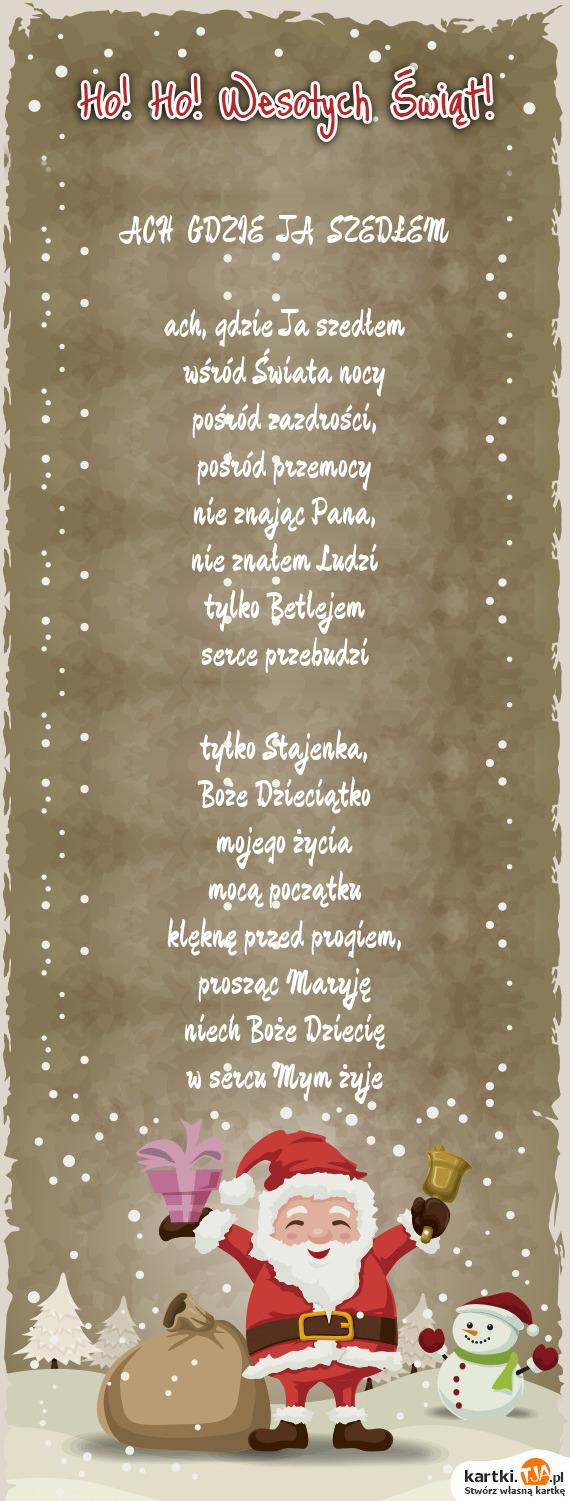 Ho! Ho! Wesołych Świąt!
ACH GDZIE JA SZEDŁEM
ach, gdzie Ja szedłem
wśród Świata nocy
pośród zazdrości,
pośród przemocy
nie znając Pana,
nie znałem Ludzi
tylko Betlejem
serce przebudzi
tylko Stajenka,
Boże Dzieciątko
mojego życia
mocą początku
klęknę przed progiem,
prosząc Maryję
niech Boże Dziecię
w sercu Mym żyje
kartki.TJA.pl
Stwórz własną kartkę